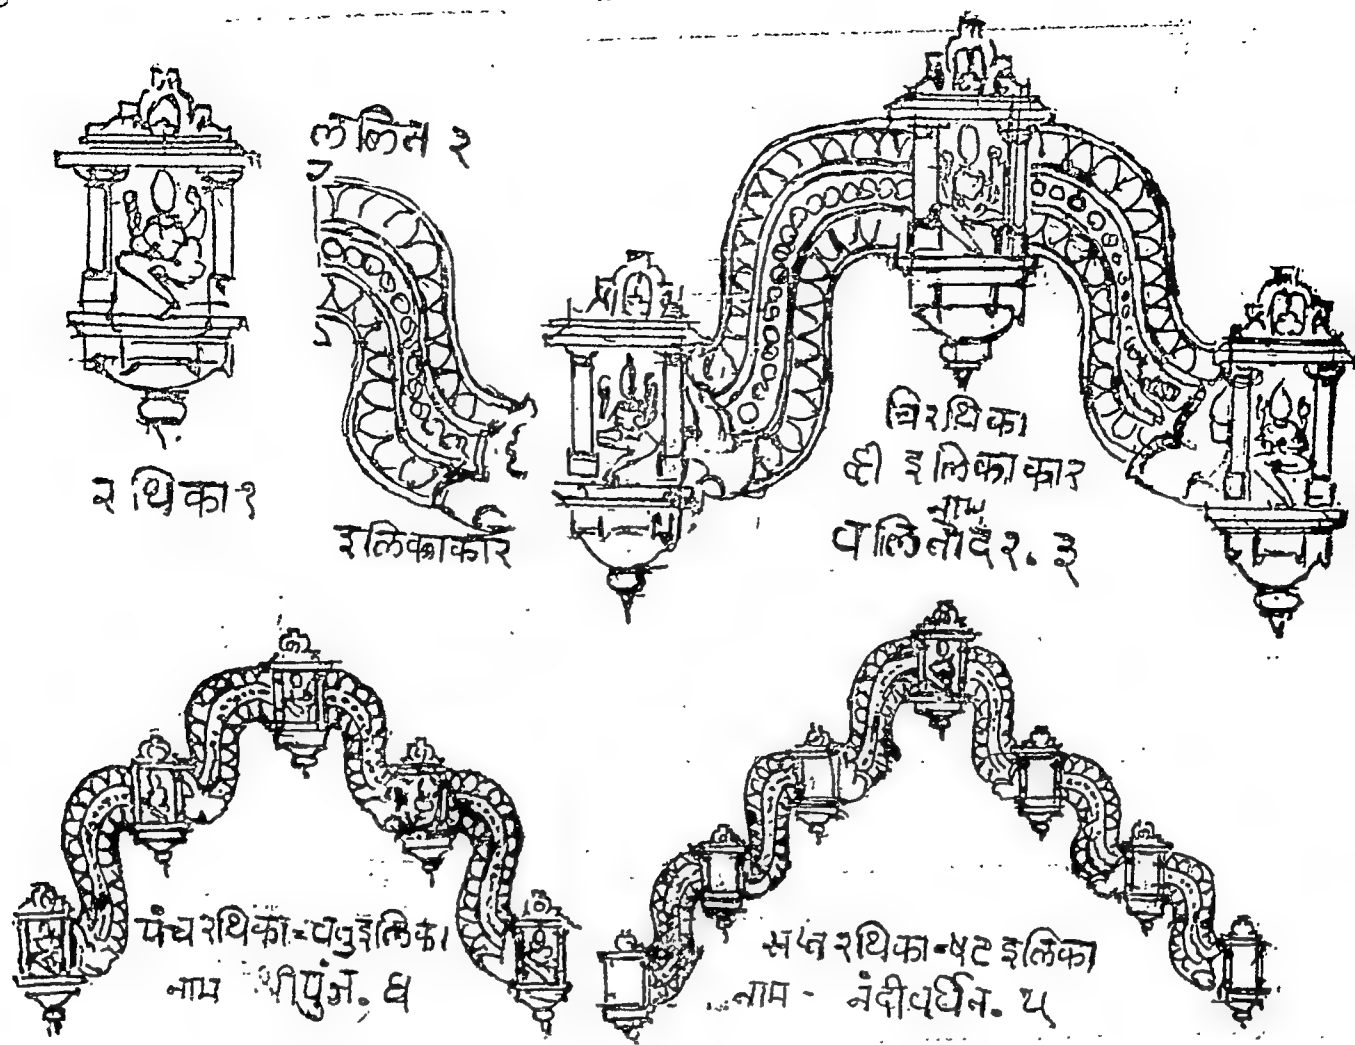 ललित २
रथिका १
इलिकाकार
त्रिरथिका
द्वी इलिकाकार
नाम
वलितोदर. ३
पंचरथिका=चतुइलिका
नाम श्रीपुंज. ४
सप्तरथिका=षट इलिका
नाम - नंदीवर्धन. ५